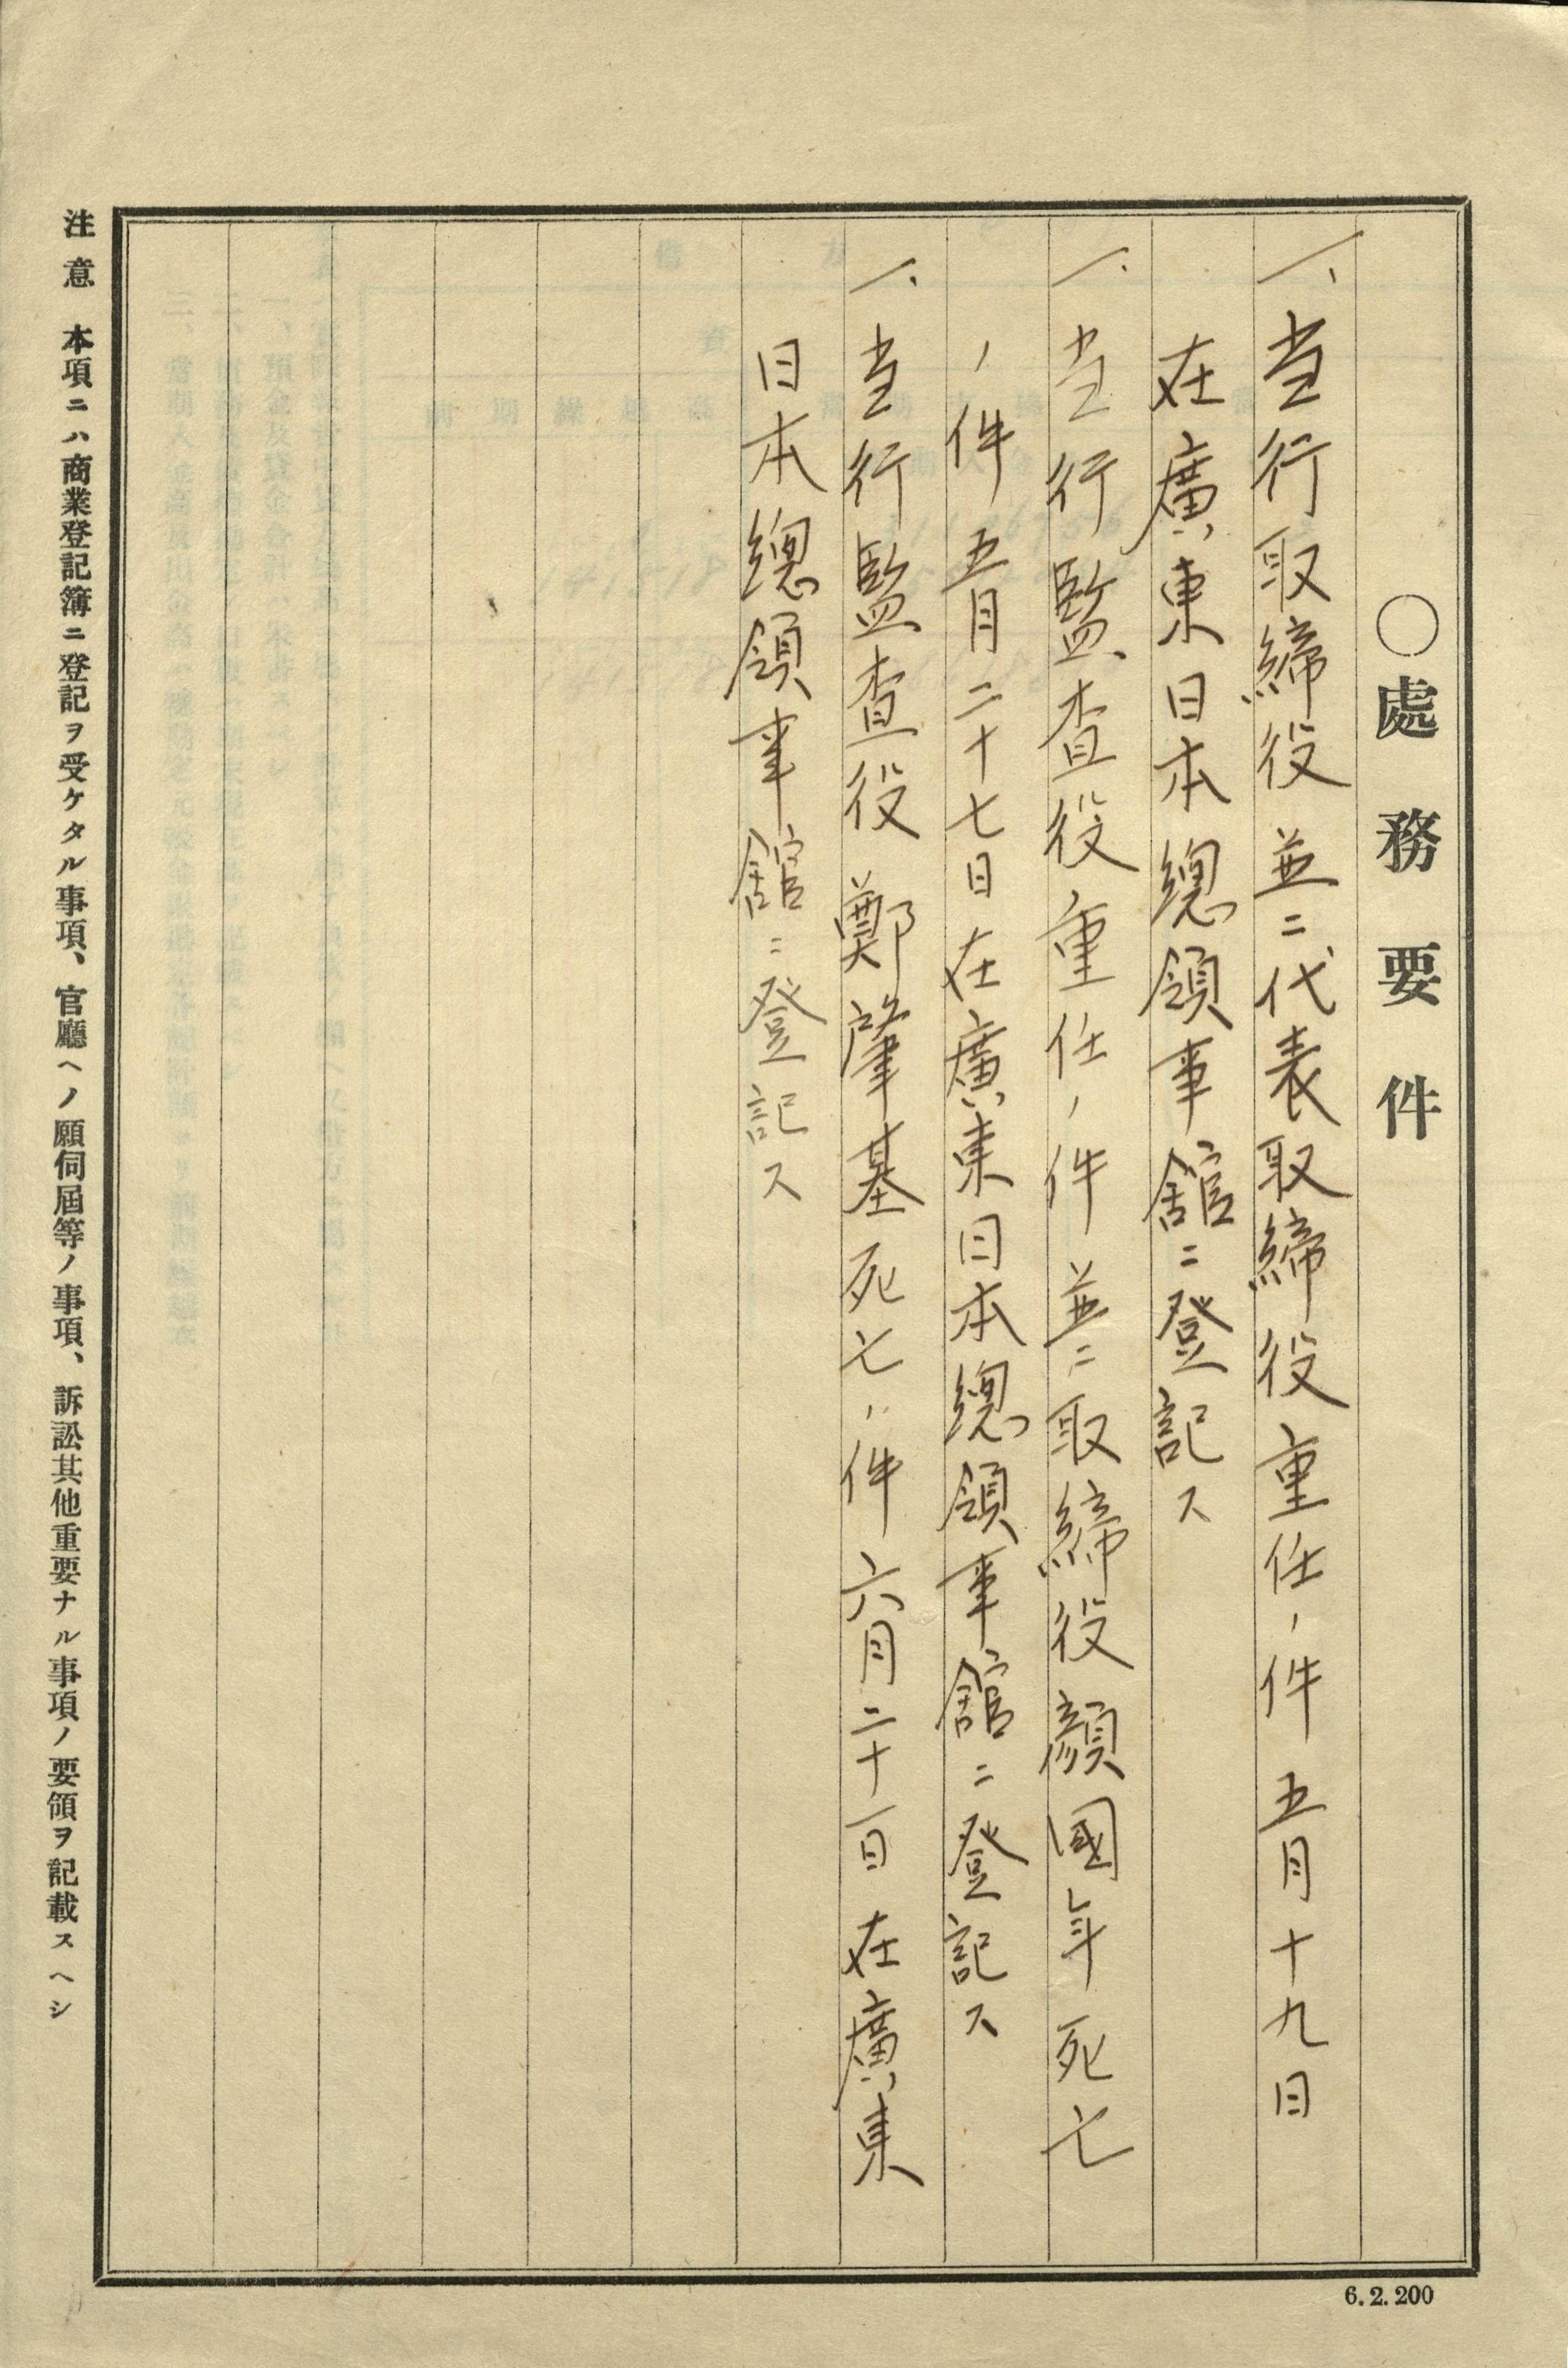 〇處務要件
一、当行取締役並ニ代表取締役重任ノ件五月十九日
在廣東日本總領事館ニ登記ス
一、当行監査役重任ノ件並ニ取締役顔國年死亡
ノ件五月二十七日在廣東日本總領事館ニ登記ス
一、当行監査役鄭肇基死亡ノ件六月二十一日在廣東
日本總領事館ニ登記ス
注意 本項ニハ商業登記簿ニ登記ヲ受ケタル事項、官廳ヘノ願伺屆等ノ事項、訴訟其他重要ナル事項ノ要領ヲ記載スヘシ
6.2.200